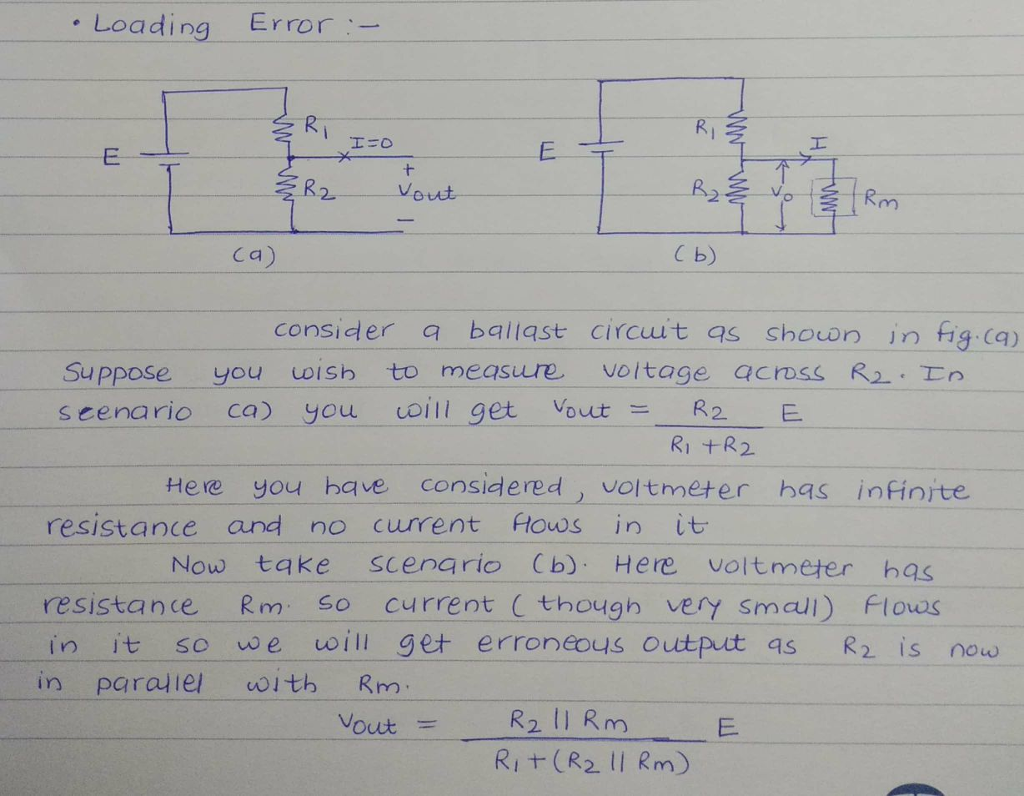 • Loading Error :-
E R1 I=0 + R2 Vout - (a)
E R1 I R2 Vo Rm (b)
consider a ballast circuit as shown in fig.(a)
Suppose you wish to measure voltage across R2. In
scenario (a) you will get Vout = R2 / R1 + R2 E
Here you have considered, voltmeter has infinite
resistance and no current flows in it
Now take scenario (b). Here voltmeter has
resistance Rm. so current (though very small) flows
in it so we will get erroneous output as R2 is now
in parallel with Rm.
Vout = R2 || Rm / R1 + (R2 || Rm) E